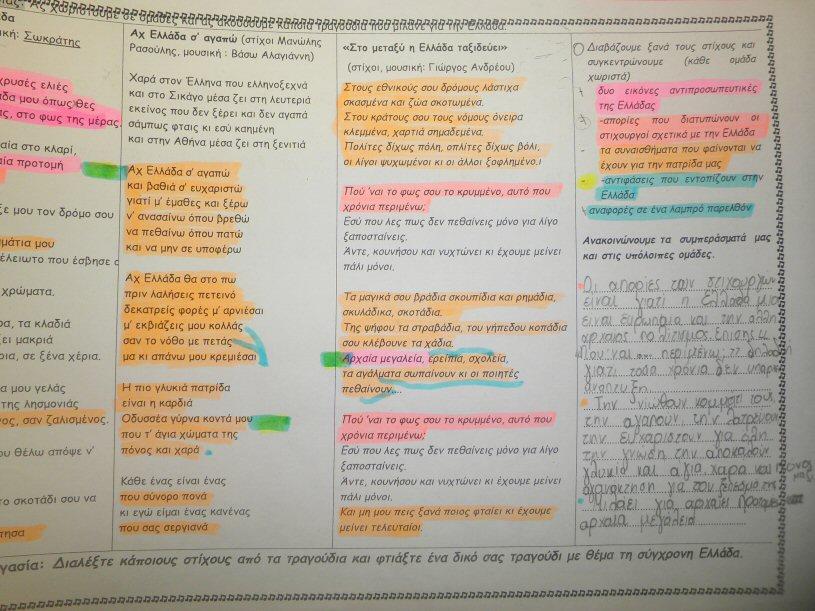 ας χωρίστουμε σε ομάδες και ας ακούσουμε κάποια τραγούδια που μιλάνε για την Ελλάδα.
δα
ική: Σωκράτης
χρυσές ελιές
δα μου όπως)θες
ας, στο φως της μέρας.
αία στο κλαρί,
αία προτομή
ξε μου τον δρόμο σου
μάτια μου
έλειωτο που έσβησε
χρώματα.
ρα, τα κλαδιά
ζει μακριά
ρια, σε ξένα χέρια.
α μου γελάς
της λησμονιάς
νος, σαν ζαλισμένος.
ου θέλω απόψε ν'
το σκοτάδι σου να
τησα
Αχ Ελλάδα σ' αγαπώ (στίχοι Μανώλης
Ρασούλης, μουσική : Βάσω Αλαγιάννη)
Χαρά στον Έλληνα που ελληνοξεχνά
και στο Σικάγο μέσα ζει στη λευτεριά
εκείνος που δεν ξέρει και δεν αγαπά
σάμπως φταις κι εσύ καημένη
και στην Αθήνα μέσα ζει στη ξενιτιά
Αχ Ελλάδα σ' αγαπώ
και βαθιά σ' ευχαριστώ
γιατί μ' έμαθες και ξέρω
ν' ανασαίνω όπου βρεθώ
να πεθαίνω όπου πατώ
και να μην σε υποφέρω
Αχ Ελλάδα θα στο πω
πριν λαλήσεις πετεινό
δεκατρείς φορές μ' αρνιέσαι
μ' εκβιάζεις μου κολλάς
σαν το νόθο με πετάς
μα κι απάνω μου κρεμιέσαι
Η πιο γλυκιά πατρίδα
είναι η καρδιά
Οδυσσέα γύρνα κοντά μου
που τ' άγια χώματα της
πόνος και χαρά
Κάθε ένας είναι ένας
που σύνορο πονά
κι εγώ είμαι ένας κανένας
που σας σεργιανά
«Στο μεταξύ η Ελλάδα ταξιδεύει»
(στίχοι, μουσική: Γιώργος Ανδρέου)
Στους εθνικούς σου δρόμους λάστιχα
σκασμένα και ζώα σκοτωμένα.
Στου κράτους σου τους νόμους όνειρα
κλεμμένα, χαρτιά σημαδεμένα.
Πολίτες δίχως πόλη, οπλίτες δίχως βόλι,
οι λίγοι ψυχωμένοι κι οι άλλοι ξοφλημένο.ι
Πού 'ναι το φως σου το κρυμμένο, αυτό που
χρόνια περιμένω;
Εσύ που λες πως δεν πεθαίνεις μόνο για λίγο
ξαποσταίνεις.
Άντε, κουνήσου και νυχτώνει κι έχουμε μείνει
πάλι μόνοι.
Τα μαγικά σου βράδια σκουπίδια και ρημάδια,
σκυλάδικα, σκοτάδια.
Της ψήφου τα στραβάδια, του γηπέδου κοπάδια
σου κλέβουνε τα χάδια.
Αρχαία μεγαλεία, ερείπια, σχολεία,
τα αγάλματα σωπαίνουν κι οι ποιητές
πεθαίνουν....
Πού 'ναι το φως σου το κρυμμένο, αυτό που
χρόνια περιμένω;
Εσύ που λες πως δεν πεθαίνεις μόνο για λίγο
ξαποσταίνεις.
Άντε, κουνήσου και νυχτώνει κι έχουμε μείνει
πάλι μόνοι.
Και μη μου πεις ξανά ποιος φταίει κι έχουμε
μείνει τελευταίοι.
Διαβάζουμε ξανά τους στίχους και
συγκεντρώνουμε (κάθε ομάδα
χωριστά)
- δυο εικόνες αντιπροσωπευτικές
της Ελλάδας
-απορίες που διατυπώνουν οι
στιχουργοί σχετικά με την Ελλάδα
- τα συναισθήματα που φαίνονται να
έχουν για την πατρίδα μας
- -αντιφάσεις που εντοπίζουν στην
Ελλάδα
αναφορές σε ένα λαμπρό παρελθόν
Ανακοινώνουμε τα συμπεράσματά μας
και στις υπόλοιπες ομάδες.
Οι απορίες των στιχουργών
είναι γιατί η Ελλάδα μια
είναι ευρωπαία και την άλλη
αρχαίος πολιτισμός. Επίσης
Που 'ναι ... περιμένω;
γιατί τόσα χρόνια δεν υπαρχ
ανάπτυξη.
Την νιώθουν κομμάτι τους,
την αγαπούν, την λατρεύουν
την ευχαριστούν για όλη
την γνώση την αποκαλούν
γλυκιά και αγία χαρά και πόνος
αγανάκτηση για τον ξεπεσμό της μας.
Μιλάει για αρχαία προτομή
αρχαία μεγαλεία
γασία: Διαλέξτε κάποιους στίχους από τα τραγούδια και φτιάξτε ένα δικό σας τραγούδι με θέμα τη σύγχρονη Ελλάδα.